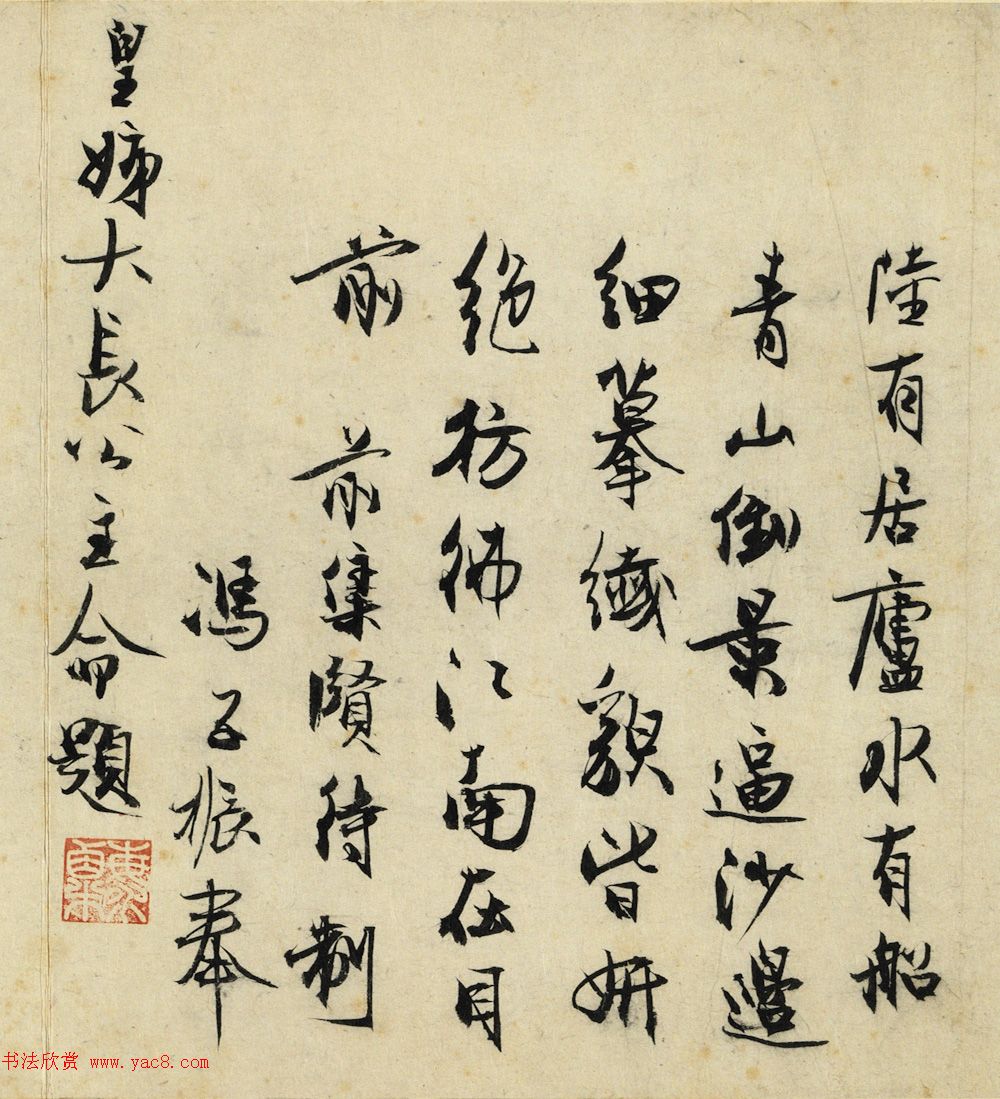 陸有居廬水有船
青山倒景逼沙邊
細摹纖貌皆妍
絶彷彿江南在目
前　前集賢待制
馮子振奉
皇姊大長公主命題
书法欣赏 www.yac8.com